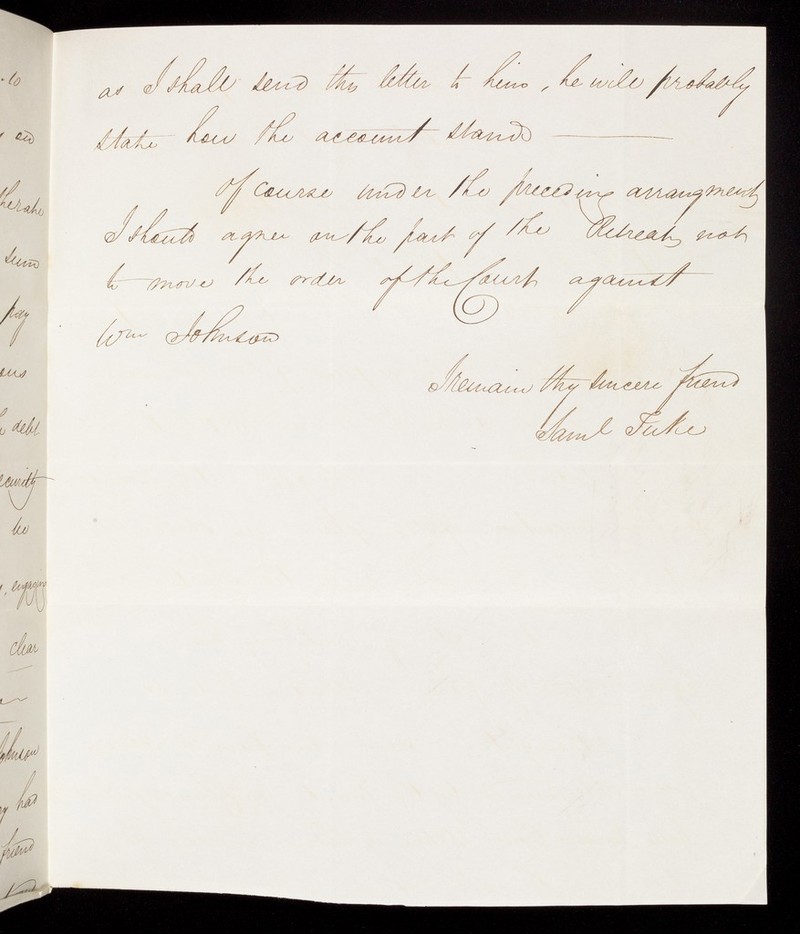 as I shall send this letter to him, he will probably
state how the account stands
Of course under the preceding arrangment
I should agree on the part of the Retreat, not
to move the order of the Court against
Wm Johnson
I remain thy sincere friend
Saml Tuke
to
sum
pay
debt
be
, engaging
clear
Johnson
had
friend